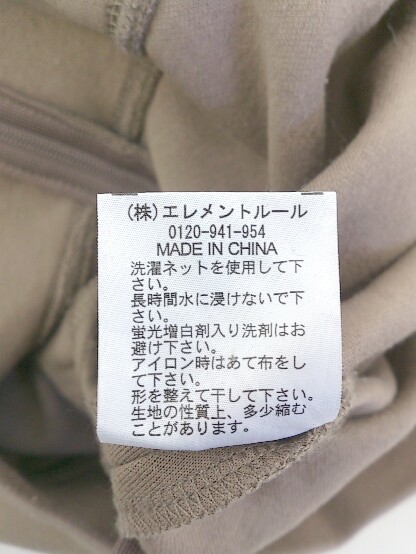 (株)エレメントルール
0120-941-954
MADE IN CHINA
洗濯ネットを使用して下
さい。
長時間水に浸けないで下
さい。
蛍光増白剤入り洗剤はお
避け下さい。
アイロン時はあて布をし
て下さい。
形を整えて干して下さい。
生地の性質上、多少縮む
ことがあります。